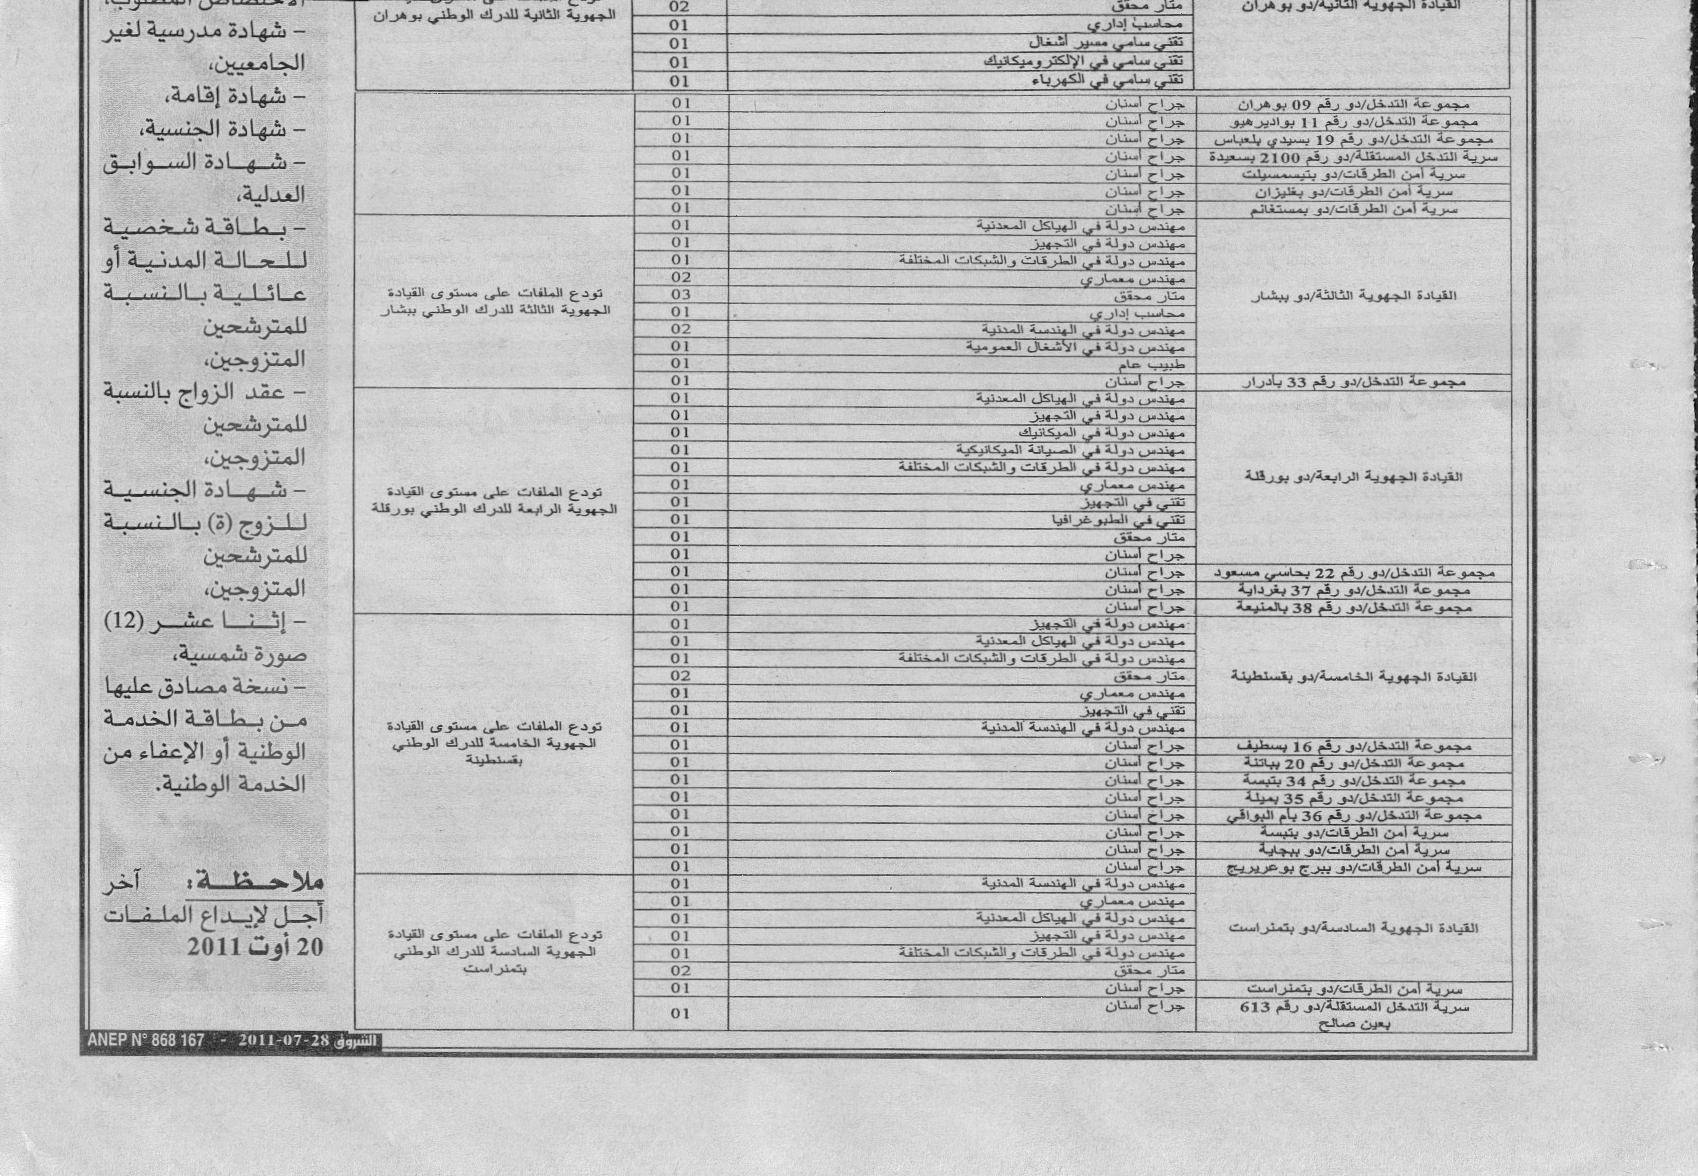 القيادة الجهوية الثانية/دو بوهران
متار محقق 02
الجهوية الثانية للدرك الوطني بوهران
محاسب إداري 01
تقني سامي مسير أشغال 01
تقني سامي في الإلكتروميكانيك 01
تقني سامي في الكهرباء 01
مجموعة التدخل/دو رقم 09 بوهران جراح أسنان 01
مجموعة التدخل/دو رقم 11 بواديرهيو جراح أسنان 01
مجموعة التدخل/دو رقم 19 بسيدي بلعباس جراح أسنان 01
سرية التدخل المستقلة/دو رقم 2100 بسعيدة جراح أسنان 01
سرية أمن الطرقات/دو بتيسمسيلت جراح أسنان 01
سرية أمن الطرقات/دو بغليزان جراح أسنان 01
سرية أمن الطرقات/دو بمستغانم جراح أسنان 01
القيادة الجهوية الثالثة/دو ببشار
مهندس دولة في الهياكل المعدنية 01
مهندس دولة في التجهيز 01
مهندس دولة في الطرقات والشبكات المختلفة 01
مهندس معماري 02
متار محقق 03
محاسب إداري 01
مهندس دولة في الهندسة المدنية 02
مهندس دولة في الأشغال العمومية 01
طبيب عام 01
مجموعة التدخل/دو رقم 33 بأدرار جراح أسنان 01
تودع الملفات على مستوى القيادة
الجهوية الثالثة للدرك الوطني ببشار
القيادة الجهوية الرابعة/دو بورقلة
مهندس دولة في الهياكل المعدنية 01
مهندس دولة في التجهيز 01
مهندس دولة في الميكانيك 01
مهندس دولة في الصيانة الميكانيكية 01
مهندس دولة في الطرقات والشبكات المختلفة 01
مهندس معماري 01
تقني في التجهيز 01
تقني في الطبوغرافيا 01
متار محقق 01
جراح أسنان 01
مجموعة التدخل/دو رقم 22 بحاسي مسعود جراح أسنان 01
مجموعة التدخل/دو رقم 37 بغرداية جراح أسنان 01
مجموعة التدخل/دو رقم 38 بالمنيعة جراح أسنان 01
تودع الملفات على مستوى القيادة
الجهوية الرابعة للدرك الوطني بورقلة
القيادة الجهوية الخامسة/دو بقسنطينة
مهندس دولة في التجهيز 01
مهندس دولة في الهياكل المعدنية 01
مهندس دولة في الطرقات والشبكات المختلفة 01
متار محقق 02
مهندس معماري 01
تقني في التجهيز 01
مهندس دولة في الهندسة المدنية 01
مجموعة التدخل/دو رقم 16 بسطيف جراح أسنان 01
مجموعة التدخل/دو رقم 20 بباتنة جراح أسنان 01
مجموعة التدخل/دو رقم 34 بتبسة جراح أسنان 01
مجموعة التدخل/دو رقم 35 بميلة جراح أسنان 01
مجموعة التدخل/دو رقم 36 بأم البواقي جراح أسنان 01
سرية أمن الطرقات/دو بتبسة جراح أسنان 01
سرية أمن الطرقات/دو ببجاية جراح أسنان 01
سرية أمن الطرقات/دو ببرج بوعريريج جراح أسنان 01
تودع الملفات على مستوى القيادة
الجهوية الخامسة للدرك الوطني
بقسنطينة
القيادة الجهوية السادسة/دو بتمنراست
مهندس دولة في الهندسة المدنية 01
مهندس معماري 01
مهندس دولة في الهياكل المعدنية 01
مهندس دولة في التجهيز 01
مهندس دولة في الطرقات والشبكات المختلفة 01
متار محقق 02
سرية أمن الطرقات/دو بتمنراست جراح أسنان 01
سرية التدخل المستقلة/دو رقم 613 جراح أسنان 01
بعين صالح
تودع الملفات على مستوى القيادة
الجهوية السادسة للدرك الوطني
بتمنراست
الاختصاص المطلوب،
– شهادة مدرسية لغير
الجامعيين،
– شهادة إقامة،
– شهادة الجنسية،
– شهادة السوابق
العدلية،
– بطاقة شخصية
للحالة المدنية أو
عائلية بالنسبة
للمترشحين
المتزوجين،
– عقد الزواج بالنسبة
للمترشحين
المتزوجين،
– شهادة الجنسية
للزوج (ة) بالنسبة
للمترشحين
المتزوجين،
– إثنا عشر (12)
صورة شمسية،
– نسخة مصادق عليها
من بطاقة الخدمة
الوطنية أو الإعفاء من
الخدمة الوطنية.
ملاحظة: آخر
أجل لإيداع الملفات
20 أوت 2011
الشروق 28-07-2011 - ANEP N° 868 167